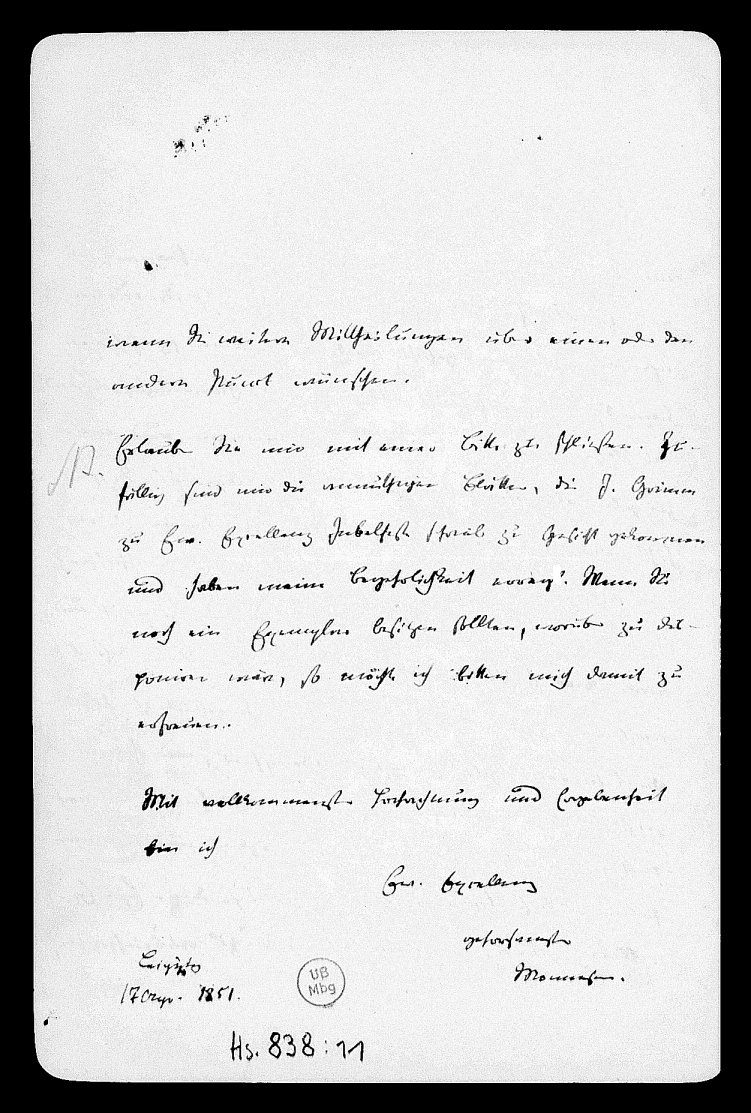 wenn Sie weitere Mittheilungen über einen oder den
andern Punct wünschen.
Erlauben Sie mir mit einer Bitte zu schließen. Zu-
fällig sind mir die anmuthigen Blätter, die J. Grimm
zu Ew. Excellenz Jubelfest schrieb zu Gesicht gekommen
und haben meine Begehrlichkeit erregt. Wenn Sie
noch ein Exemplar besitzen sollten, worüber zu dis-
poniren wäre, so möchte ich bitten mich damit zu
erfreuen.
Mit vollkommenster Hochachtung und Ergebenheit
bin ich
Ew. Excellenz
gehorsamster
Mommsen.
Leipzig
17 1851.
UB
Mbg
Hs. 838:11